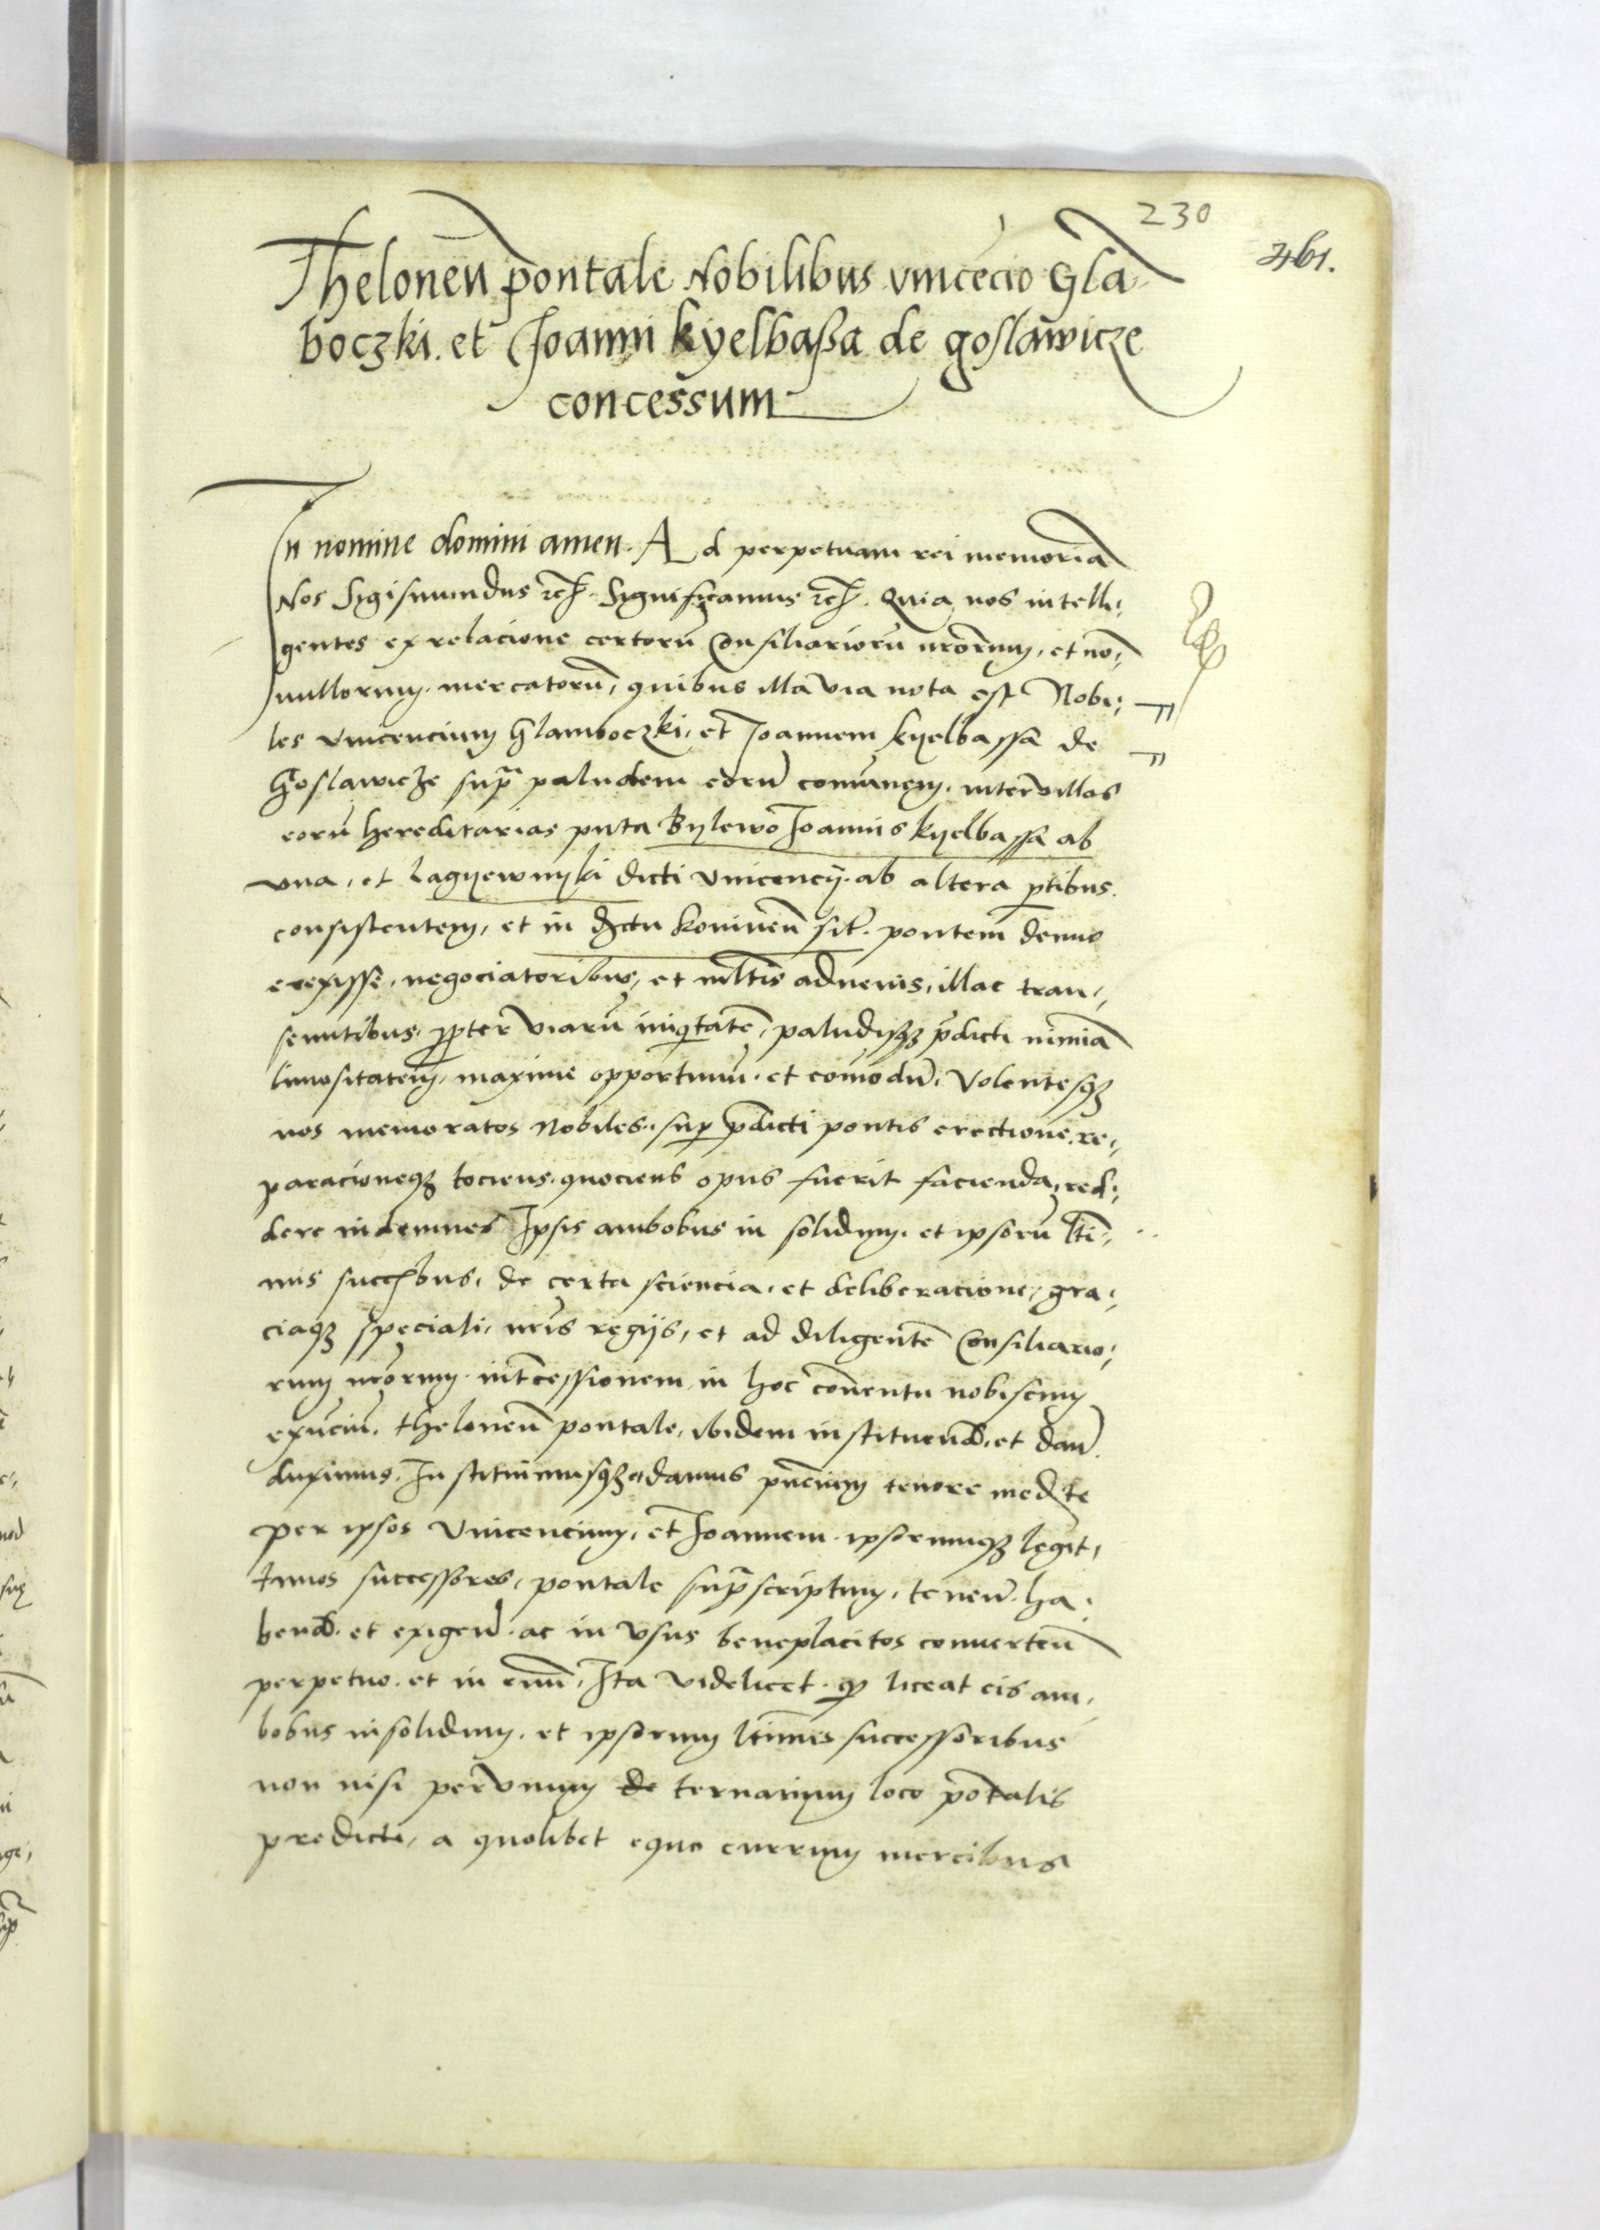 230
461.
Theloneu pontale Nobilibus vincecio Gla-
boczki. et Joanni kyelbaßa de goslawicze
concessum
In nomine domini amen. Ad perpetuam rei memoria
Nos Sigismundus etc. Significamus etc. Quia nos intelli-
gentes ex relacione certoru Consiliarioru nrorum, et no-
nullorum mercatoru, quibus illa via nota est Nobi-
les vincencium Glamboczki, et Joannem kyelbassa de
Goslawicze supra paludem eoru comunem, inter villas
eoru hereditarias puta Bylewo Joannis kyelbassa ab
vna, et Lagyewnyki dicti vincencij ab altera ptibus
consistentem, et in dictu koninen sit. pontem denuo
erexisse, negociatoribus, et mltis aduenis, illac tran-
seuntibus, propter viaru iniqtate, paludisqz pdicti nimia
limositatem, maxime opportunu et comodu. Volentesqz
nos memoratos Nobiles, sup pdicti pontis erectione, re-
paracioneqz tociens, quociens opus fuerit facienda, red-
dere indemnes Ipsis ambobus in solidum, et ipsoru lti-
mis succbus, de certa sciencia, et deliberacione, gra-
ciaqz speciali, nris regijs, et ad diligente Consiliario-
rum nrorum intcessionem in hoc conuentu nobiscum
exnciu, theloneu pontale, ibidem instituend, et dan
duximus. Instituimusqz et damus pncium tenore medte
per ipsos Vincencium, et Joannem ipsorumqz legit-
timos successores, pontale suprascriptum, tenen ha-
bend, et exigen ac in vsus beneplacitos conuerten
perpetuo et in euu. Ita videlicet q liceat eis am-
bobus insolidum, et ipsorum ltimis successoribus
non nisi per vnum de ternarium loco pontalis
predicti, a quolibet equo currum mercibus